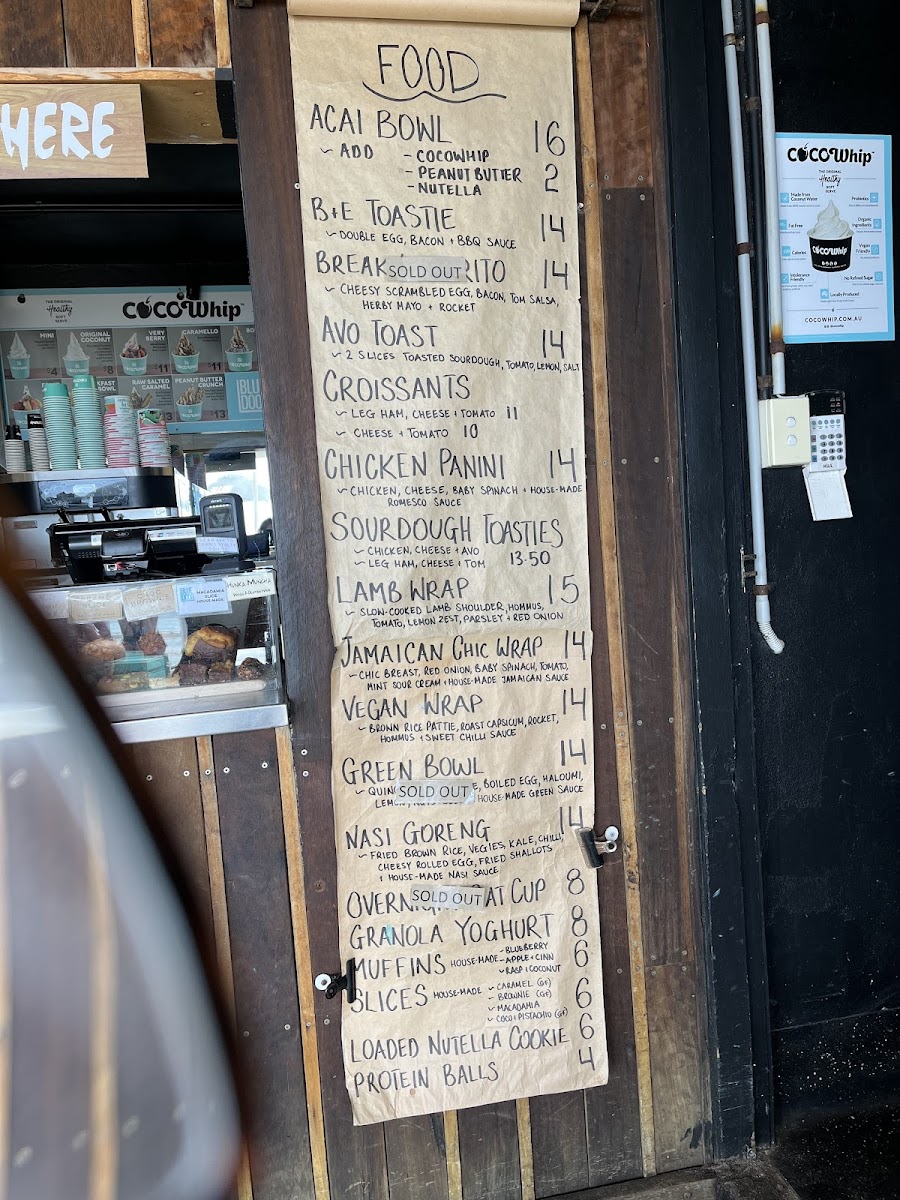 FOOD
ACAI BOWL 16
~ ADD - COCOWHIP
- PEANUT BUTTER 2
- NUTELLA
B+E TOASTIE 14
~ DOUBLE EGG, BACON + BBQ SAUCE
BREAK SOLD OUT RITO 14
~ CHEESY SCRAMBLED EGG, BACON, TOM SALSA,
HERBY MAYO + ROCKET
AVO TOAST 14
~ 2 SLICES TOASTED SOURDOUGH, TOMATO, LEMON, SALT
CROISSANTS
~ LEG HAM, CHEESE + TOMATO 11
~ CHEESE + TOMATO 10
CHICKEN PANINI 14
~ CHICKEN, CHEESE, BABY SPINACH + HOUSE-MADE
ROMESCO SAUCE
SOURDOUGH TOASTIES
~ CHICKEN, CHEESE + AVO 13.50
~ LEG HAM, CHEESE + TOM
LAMB WRAP 15
~ SLOW-COOKED LAMB SHOULDER, HOMMUS,
TOMATO, LEMON ZEST, PARSLEY + RED ONION
JAMAICAN CHIC WRAP 14
~ CHIC BREAST, RED ONION, BABY SPINACH, TOMATO,
MINT SOUR CREAM + HOUSE-MADE JAMAICAN SAUCE
VEGAN WRAP 14
~ BROWN RICE PATTIE, ROAST CAPSICUM, ROCKET,
HOMMUS + SWEET CHILLI SAUCE
GREEN BOWL 14
~ QUINO SOLD OUT E, BOILED EGG, HALOUMI,
LEMON, HOUSE-MADE GREEN SAUCE
NASI GORENG 14
~ FRIED BROWN RICE, VEGIES, KALE, CHILLI,
CHEESY ROLLED EGG, FRIED SHALLOTS
+ HOUSE-MADE NASI SAUCE
OVERNIG SOLD OUT AT CUP 8
GRANOLA YOGHURT 8
MUFFINS HOUSE-MADE - BLUEBERRY 6
- APPLE + CINN
~ RASP + COCONUT
SLICES HOUSE-MADE ~ CARAMEL (GF) 6
~ BROWNIE (GF)
~ MACADAMIA
~ COCO + PISTACHIO (GF)
LOADED NUTELLA COOKIE 6
PROTEIN BALLS 4
HERE
THE ORIGINAL
Healthy
SOFT SERVE
COCOWhip™
MINI
ORIGINAL COCONUT
VERY BERRY
CARAMELLO
4
8
11
11
RAW SALTED CARAMEL
PEANUT BUTTER CRUNCH
13
MACADAMIA
SLICE
HOUSE-MADE
COCOWhip™
THE ORIGINAL
Healthy
SOFT SERVE
Made from
Coconut Water
Probiotics
Fat Free
Organic
Ingredients
Calories
Vegan
Friendly
Intolerance
Friendly
No Refined Sugar
Locally Produced
COCOWhip
COCOWHIP.COM.AU